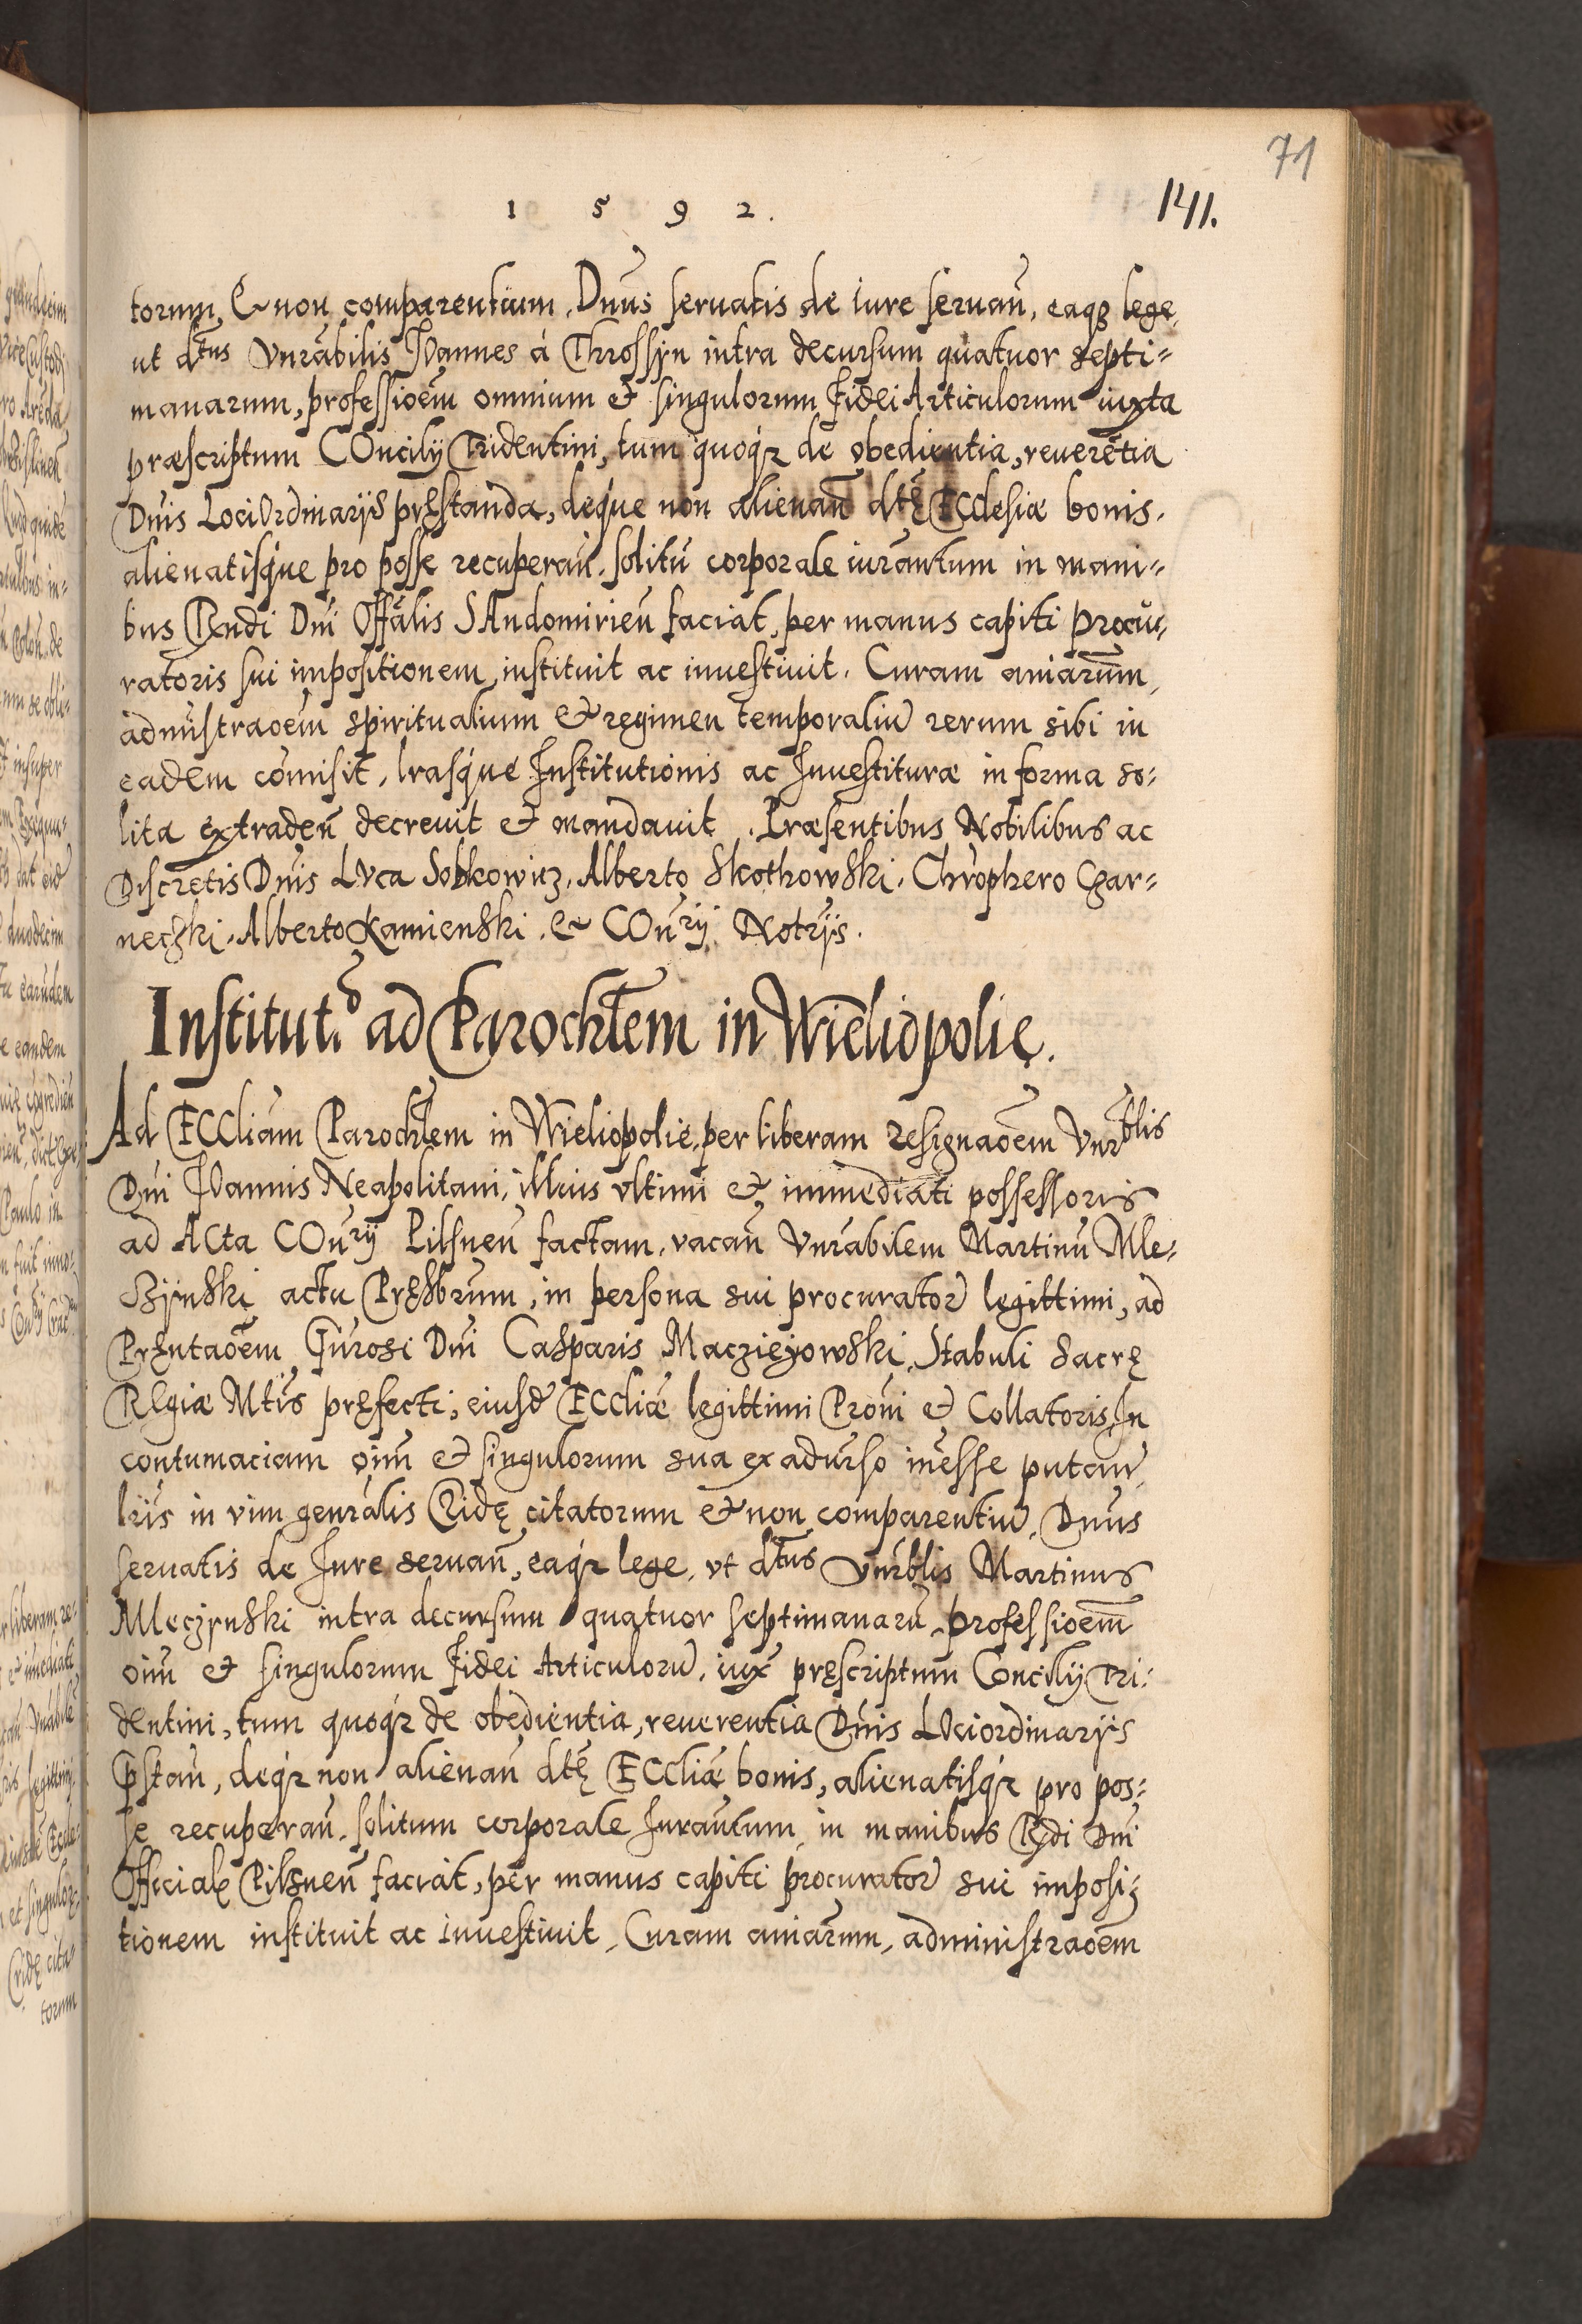 71
1 5 9 2.
141.
torum, & non comparentium, Dnus servatis de iure servan̄, eaqȝ lege,
ut dtus Vnrabilis IOannes á Throssyn intra decursum quatuor septi=
manarum, professioēm omnium et singulorum Fidei Articulorum iuxta
præscriptum COncilij Tridentini, tum quoqȝ de obedientia, reuerētia
Dnis Loci Ordinarijs pręstanda, deque non alienan̄ dtę ECclesiæ bonis,
alienatisque pro posse recuperan̄, solitū corporale iurāntum in mani=
bus Rndi Dni Offālis SAndomirien̄ faciat, per manus capiti procu,
ratoris sui impositionem instituit ac inuestiuit. Curam aniarum,
admīstraoēm spiritualium et regimen temporaliū rerum sibi in
eadem cōmisit, lrasque Institutionis ac Inuestituræ in forma so=
lita extraden̄ decreuit et mandauit. Præsentibus Nobilibus ac
Discretis Dnis LVca Sobkowicz, Alberto Skothowski, Chrophero Czar=
neczki, Alberto Kamienski & COnrij Notrijs.
Institut.o ad Parochlem in Wieliopolie.
Ad ECcliam Parochlem in Wieliopolie, per liberam resignaoēm Vnrblis
Dni IOannis Neapolitani, illius vltimi et immediati possessoris
ad ACta COnrij Pilsnen̄ factam, vacan̄ Vnrabilem Martinū Mle=
czynski actu Pręsbrum, in persona sui procurator̄ legittimi, ad
Pręntaoēm Gnrosi Dni Casparis Maczieyowski, Stabuli Sacrę
REgiæ Mtis pręfecti, eiusd̄ ECcliæ legittimi Proni et Collatoris, In
contumaciam oim̄ et singulorum sua ex adurso inēsse putan̄
lris in vim genralis Cridę citatorum et non comparentiū, Dnus
seruatis de Iure seruan̄, eaqȝ lege, vt dtus Vnrblis Martinus
Mleczynski intra decursum quatuor septimanarū, professioēm
oim̄ et singulorum Fidei Articulorū, iux̄ pręscriptum Concilij Tri=
dentini, tum quoqȝ de obedientia, reuerentia Dnis LOci ordinarijs
p̄stan̄, deqȝ non alienan̄ dtę ECcliæ bonis, alienatisqȝ pro pos=
se recuperan̄, solitum corporale Iurāntum in manibus Rdi Dni
Officialę Pilsnen̄ faciat, per manus capiti procurator̄ sui imposi=
tionem instituit ac inuestiuit, Curam aniarum, administraoēm